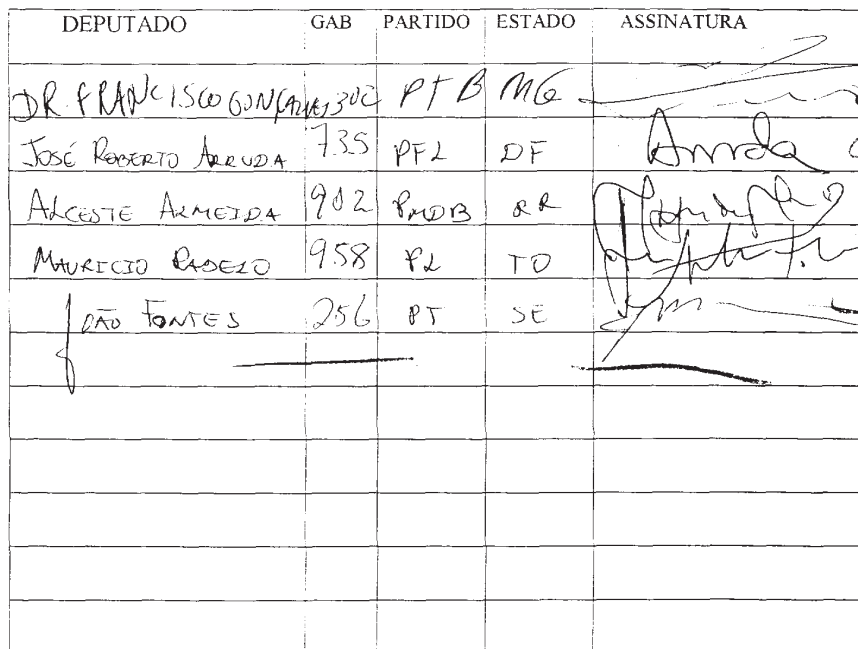 DEPUTADO GAB PARTIDO ESTADO ASSINATURA
DR. FRANCISCO GONÇALVES 302 PTB MG
JOSÉ ROBERTO ARRUDA 735 PFL DF Arruda
ALCESTE ALMEIDA 902 PMDB RR
MAURICIO RABELO 958 PL TO
JOÃO FONTES 256 PT SE